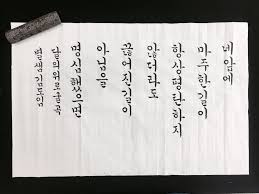 네 앞에
마주한 길이
항상 평탄하지
않더라도
끊어진 길이
아님을
명심했으면